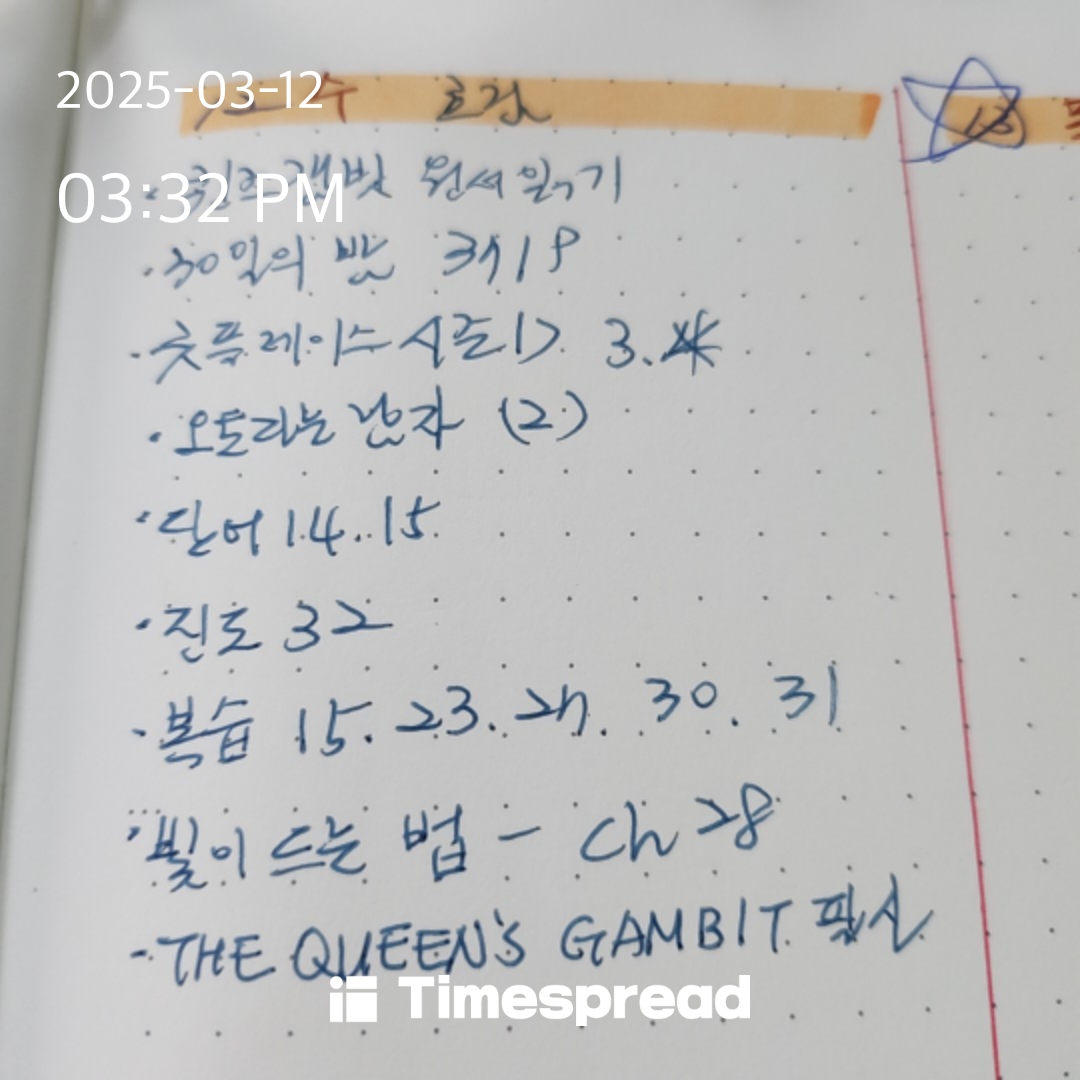 2025-03-12
수
03:32 PM
퀸즈 갬빗 원서 읽기
·30일의 밤
·굿플레이스 시즌1> 3.
·오토라는 남자 (2)
·단어 14. 15
·진도 32
·복습 15. 23. 30. 31
·빛이 드는 법 - ch 28
·THE QUEEN'S GAMBIT 필사
Timespread